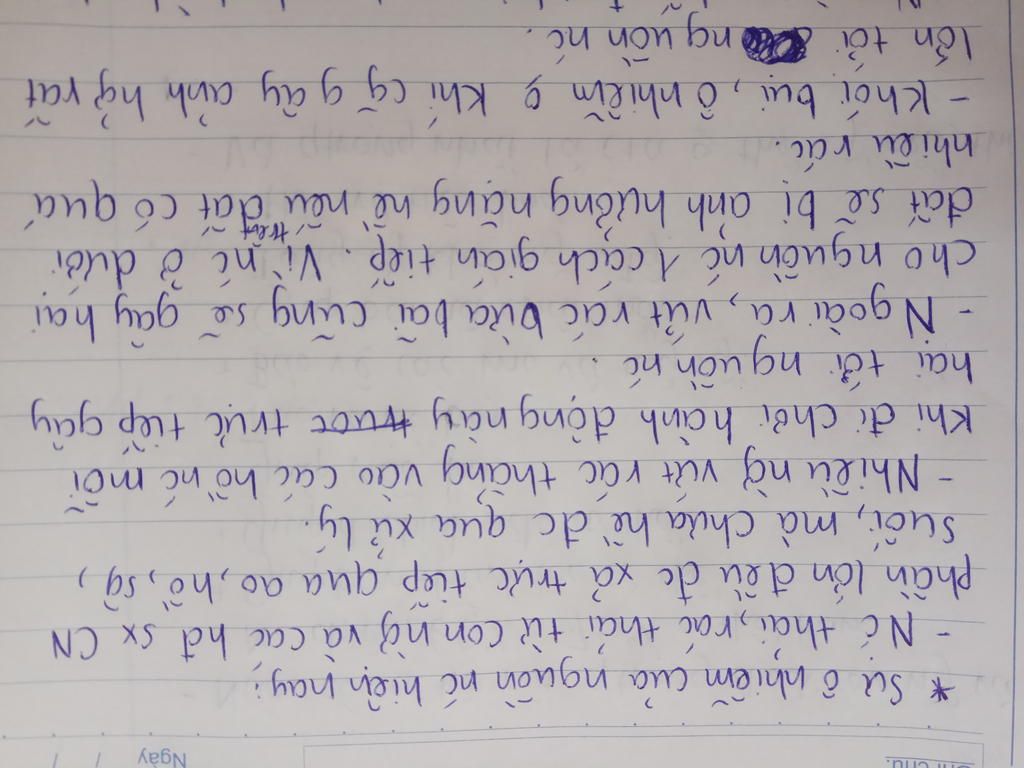 Ghi chú:
Ngày / /
* Sự ô nhiễm của nguồn nc hiện nay:
- Nc thải, rác thải từ con ng và các hđ sx CN
phần lớn đều đc xả trực tiếp qua ao, hồ, sg,
suối, mà chưa hề đc qua xử lý.
- Nhiều ng vứt rác thẳng vào các hồ nc mỗi
khi đi chơi hành động này trực tiếp gây
hại tới nguồn nc.
- Ngoài ra, vứt rác bừa bãi cũng sẽ gây hại
cho nguồn nc 1 cách gián tiếp. Vì nc ở dưới
đất sẽ bị ảnh hưởng nặng nề nếu trên đất có quá
nhiều rác.
- Khói bụi, ô nhiễm k khí cg gây ảnh hg rất
lớn tới nguồn nc.